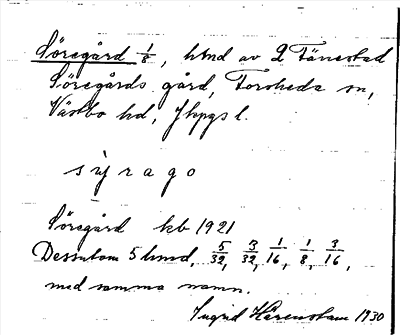 Söregård 1/8, hmd av 2 Tånnestad
Söregårds gård, Forsheda sn,
Västbo hd, Jkpgs l.
söȷ r a g o
Söregård kb 1921
Dessutom 5 hmd, 5/32, 3/32, 1/16, 1/8, 3/16,
med samma namn.
Ingrid Härenstam 1930